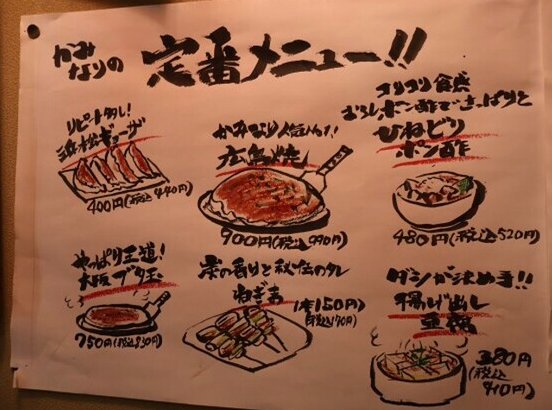 かみなりの
定番メニュー!!
リピート多し!
浜松ギョーザ
400円(税込440円)
かみなり人気No.1!
広島焼
900円(税込990円)
コリコリ食感
おろしポン酢でさっぱりと
ひねどり
ポン酢
480円(税込520円)
やっぱり王道!
大阪ブタ玉
750円(税込830円)
炭の香りと秘伝のタレ
ねぎま
1本150円
(税込170円)
ダシが決め手!!
揚げ出し
豆腐
380円
(税込
410円)